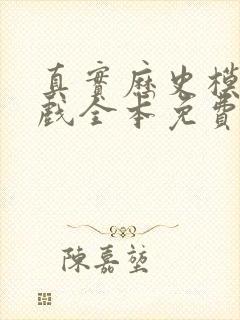 真實歷史模
戲全本免費
陳嘉堃